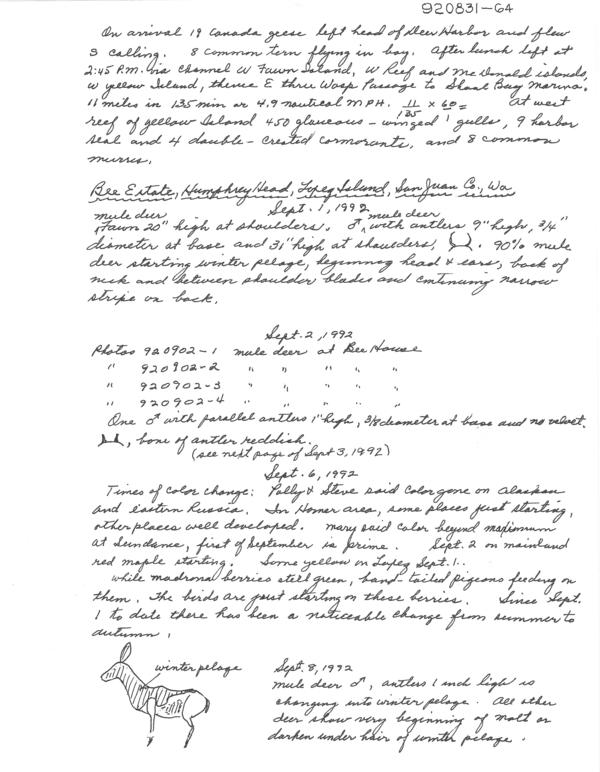 920831-64
On arrival 19 Canada geese left head of Deer Harbor and flew
S calling. 8 common tern flying in bay. After lunch left at
2:45 P.M. via Channel W Fawn Island, W Reef and McDonald islands,
W yellow Island, thence E thru Wasp Passage to Shoal Bay Marina.
11 miles in 135 min or 4.9 nautical M.P.H. 11/135 x 60 = At west
reef of yellow Island 450 glaucous-winged gulls, 9 harbor
seal and 4 double-crested cormorants, and 8 common
murres.
Bee Estate, Humphrey Head, Lopez Island, San Juan Co., Wa
Sept. 1, 1992
mule deer mule deer
Fawn 20" high at shoulders. ♂ with antlers 9" high, 3/4"
diameter at base and 31" high at shoulders, . 90% mule
deer starting winter pelage, beginning head & ears, back of
neck and between shoulder blades and continuing narrow
stripe on back.
Sept. 2, 1992
Photos 920902-1 mule deer at Bee House
" 920902-2 " " " " "
" 920902-3 " " " " "
" 920902-4 " " " " "
One ♂ with parallel antlers 1" high, 3/8 diameter at base and no velvet.
, bone of antler reddish.
(see next page of Sept 3, 1992)
Sept. 6, 1992
Times of color change: Polly & Steve said color gone on Alaskan
and eastern Russia. In Homer area, some places just starting,
other places well developed. Mary said color beyond maximum
at Sundance, first of September is prime. Sept. 2 on mainland
red maple starting. Some yellow on Lopez Sept. 1.
While madrona berries still green, band-tailed pigeons feeding on
them. The birds are just starting on these berries. Since Sept.
1 to date there has been a noticeable change from summer to
autumn.
winter pelage
Sept. 8, 1992
mule deer ♂, antlers 1 inch high is
changing into winter pelage. All other
deer show very beginning of molt or
darken under hair of winter pelage.